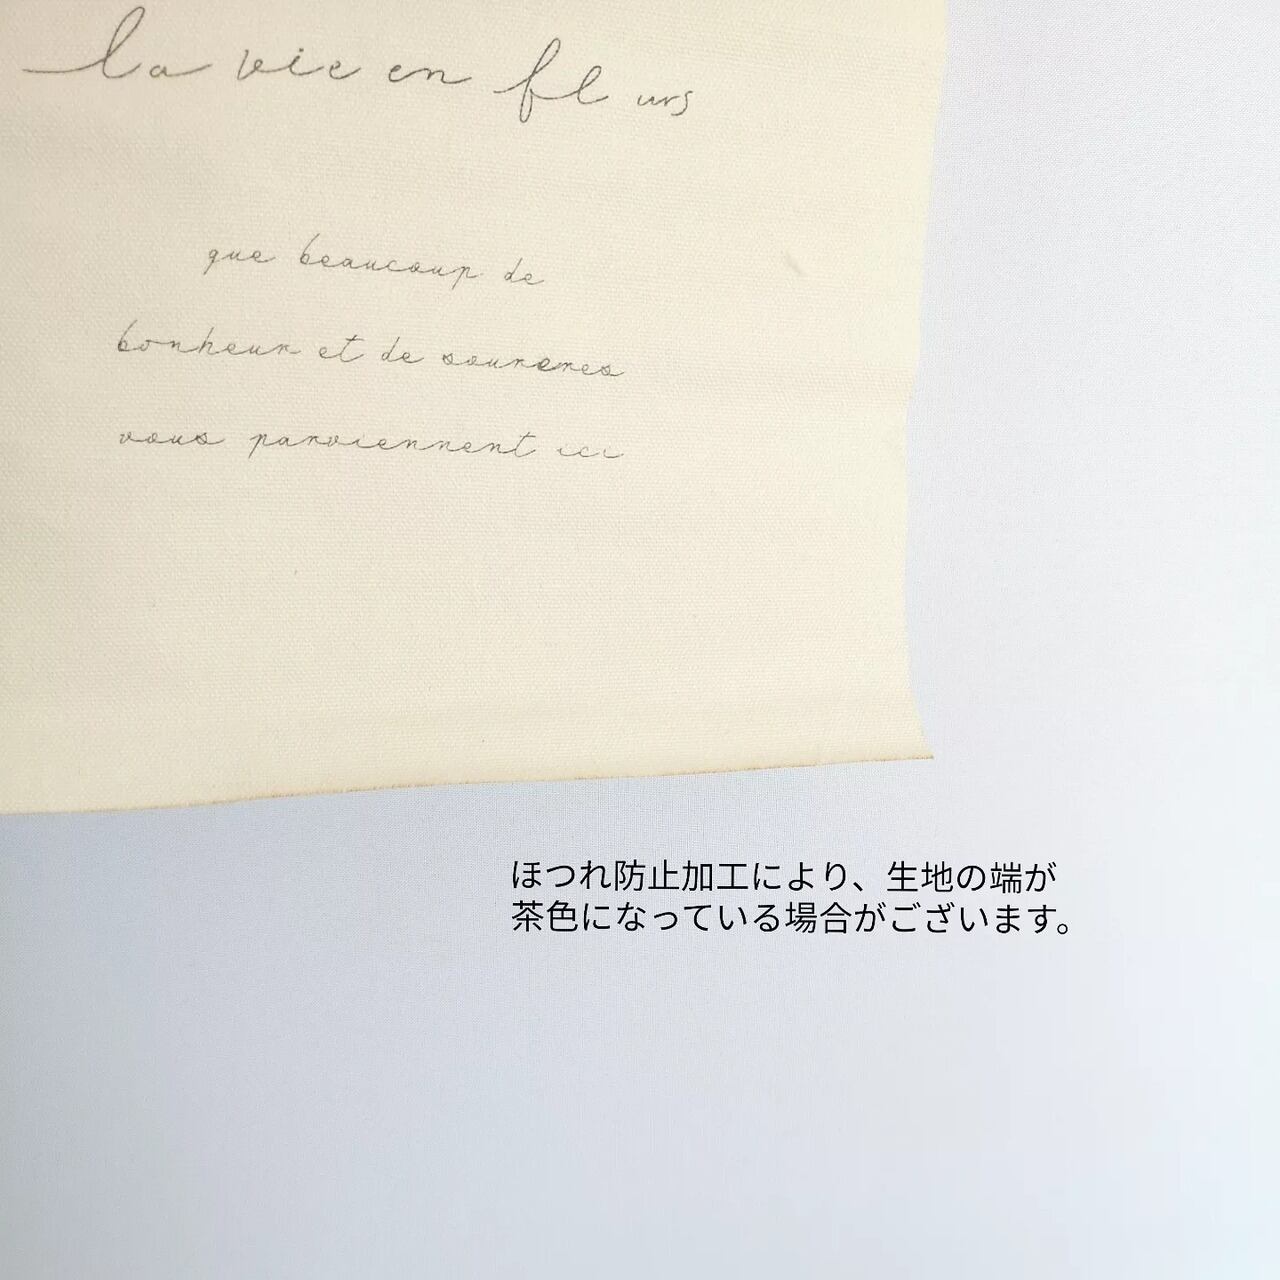 la vie en fl urs
que beaucoup de
bonheur et de
vous parviennent ici
ほつれ防止加工により、生地の端が
茶色になっている場合がございます。